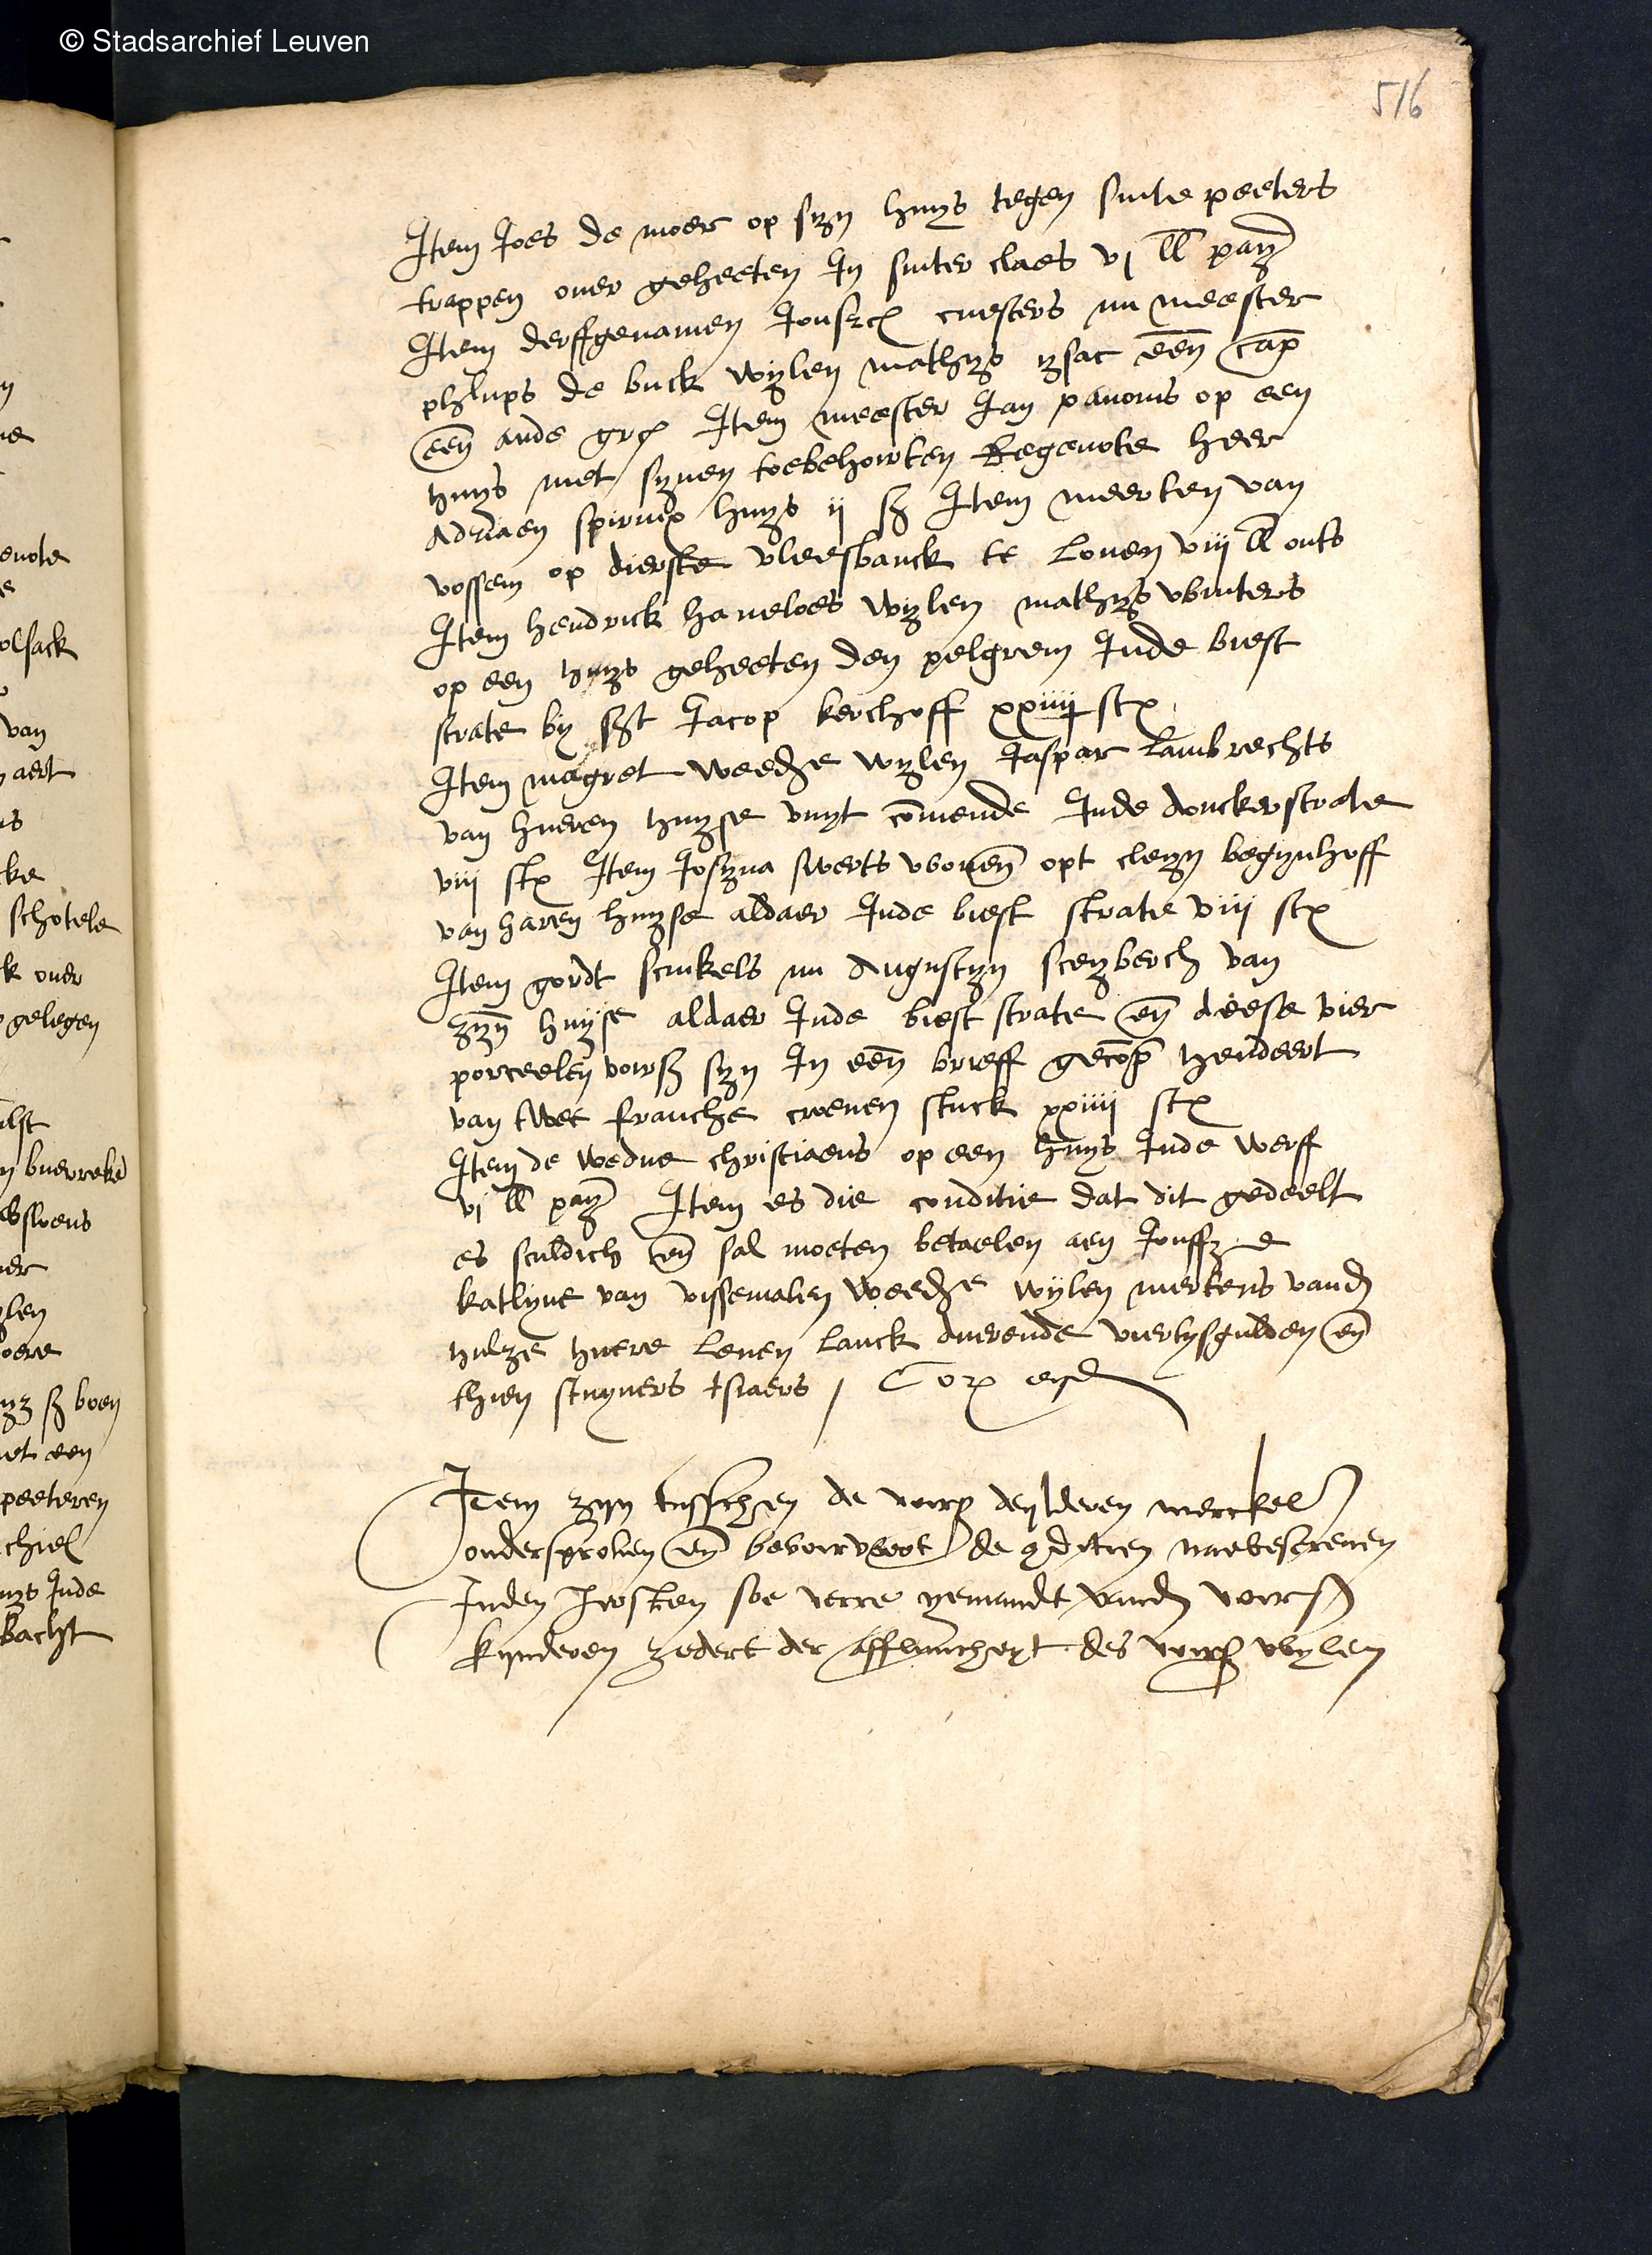 © Stadsarchief Leuven
516
Item Joes de moer op syn huys tegen sinte peeters
trappen over geheeten In sinter claes vj ll pay
Item derffgenamen Jouffr cuesters nu meester
phlups de buck wylen mathys ysac een cap
een ande Item meester Jan pavonis op een
huys met synen toebehoirten Regenote heer
Adriaen huys ij s Item meerten van
vossem op dierste vleesbanck te loven viij ll outs
Item hendrick haveloes wylen mathys winters
op een huys geheeten den pelgrem Inde biest
strate by sint Jacop kerchoff xxiiij st
Item magret weede wylen Jaspar lambrechts
van hueren huyse vuyt comende Inde donckerstrate
viij st Item Josyna swerts woonen opt cleyn begynhoff
van haren huyse aldaer Inde biest strate viij st
Item gordt scinkels nu Augustyn van
zyn huyse aldaer Inde biest strate en deese vier
porceelen voirs syn In een brieff gecomp
van twee franche croenen stuck xxiiij st
Item de wedue christiaens op een huys Inde werff
vj ll pay Item es die conditie dat dit gedeelt
es sculdich en sal moeten betaelen aen Jouff
katlyne van vissenaken weede wylen mertens vand
hulze huere leven lanck duerende viertysgulden en
thien stuyvers tsiaers / Cor
Item zyn tusschen de voirs deylderen
ondersproken en bevoirwert de conditien naebescreven
Inden Iersten soe verre yemandt vand voirs
kynderen zedert der afflivicheyt des voirs wylen